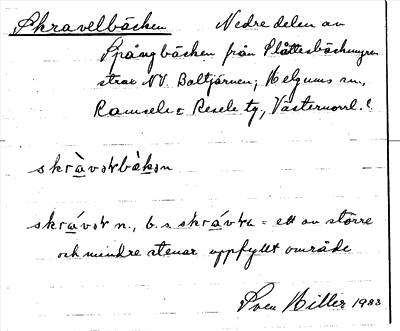 Skravelbäcken Nedre delen av
Spångbäcken från Slåttesbäckmyren
strax NV. Baltjärnen; Helgums sn.,
Ramsele o Resele tg, Västernorrl. l.
skràvəɫbàkən
skrávəɫ n., b. s. skrávlɑ = ett av större
och mindre stenar uppfyllt område
Sven Hiller 1983